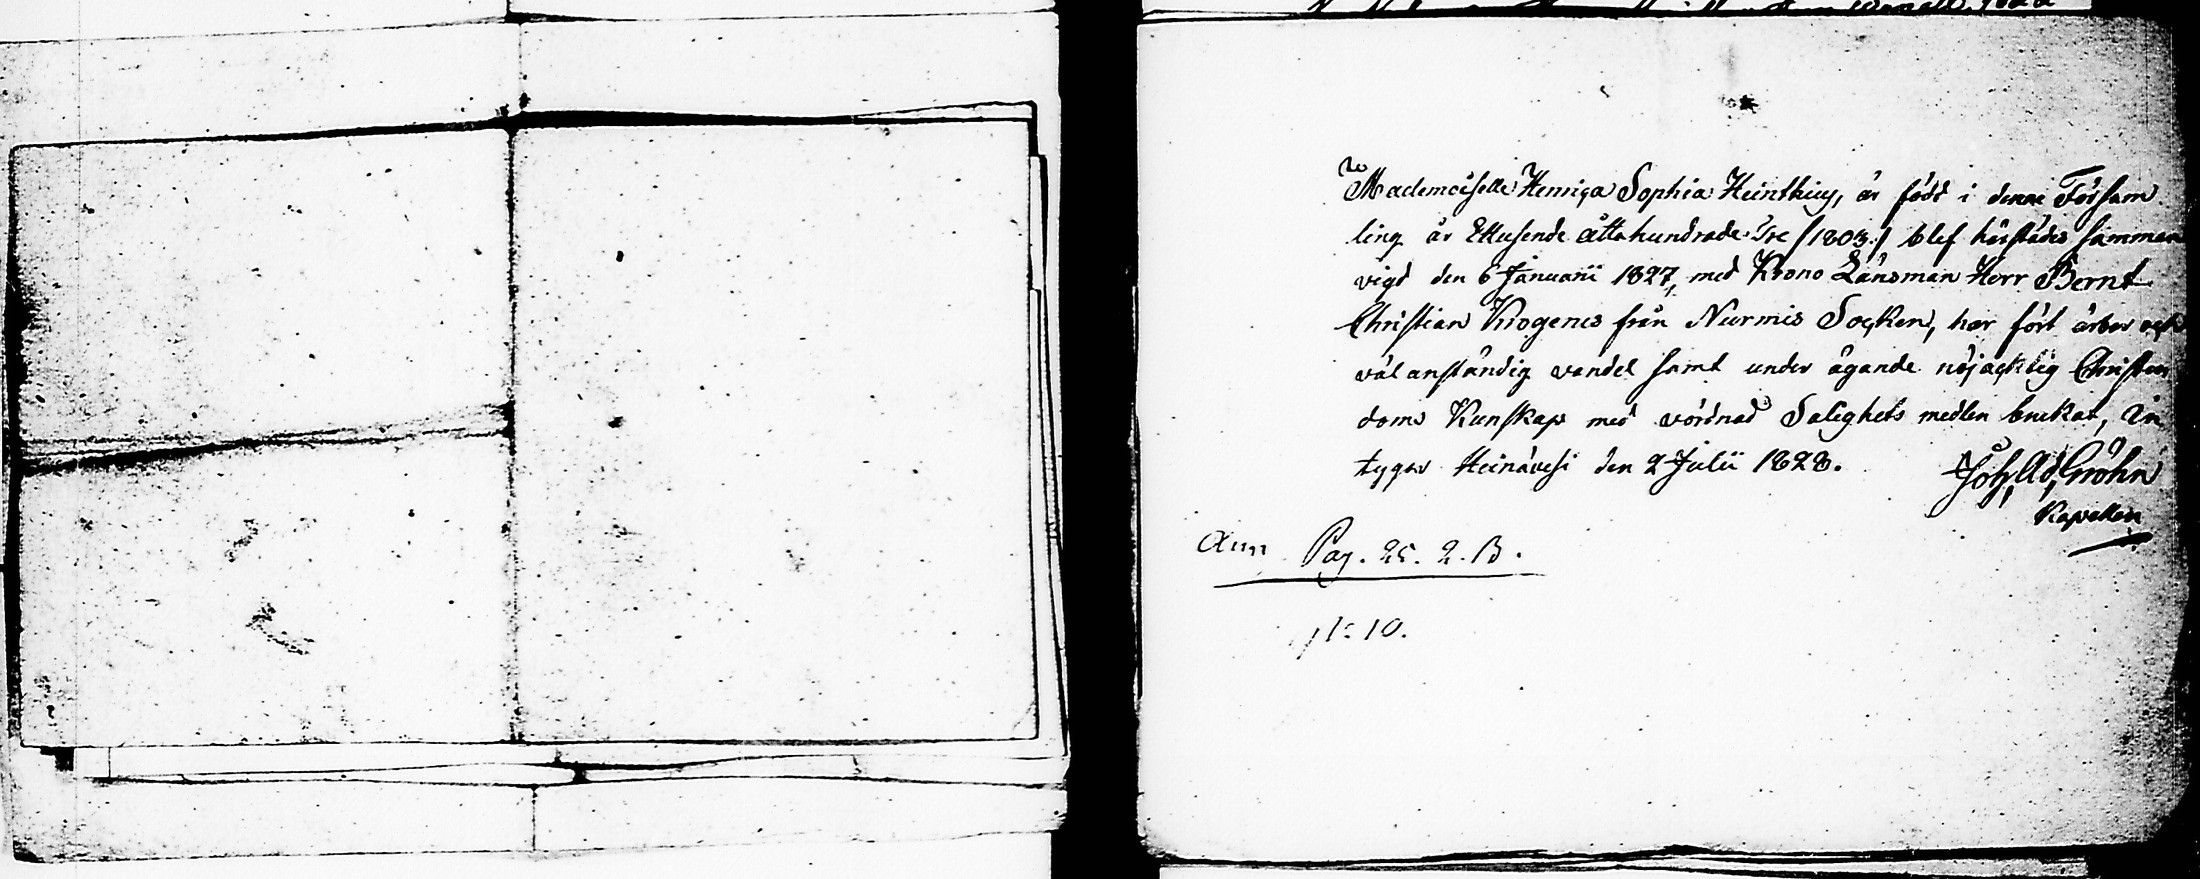 Mademoiselle Henrica Sophia Heinthius, är född i denne Försam
ling år Ettusende åtta hundrade Tre /1803./ blef härstädes samman
vigd den 6 Januarii 1827, med Krono Länsman Herr Bernt
Christian Krogerus från Nurmis Socken, har fört ärbar och
välanständig vandel samt under ägande nöjacktig Christen
doms Kunskap med vördnad Salighets medlen brukat, in
tygar Heinävesi den 2 Julii 1828. Joh, Ad, Gröhn
Kapellan
Ann Pag. 25. 2. B.
N: 10.